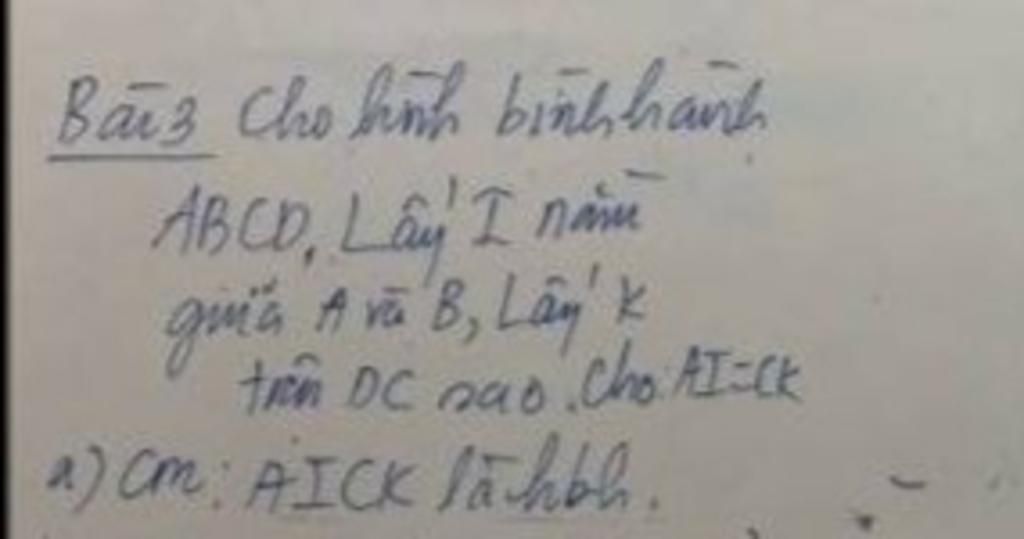 Bài 3 Cho hình bình hành
ABCD. Lấy I nằm
giữa A và B, Lấy K
trên DC sao cho AI=CK
a) Cm: AICK là hbh.